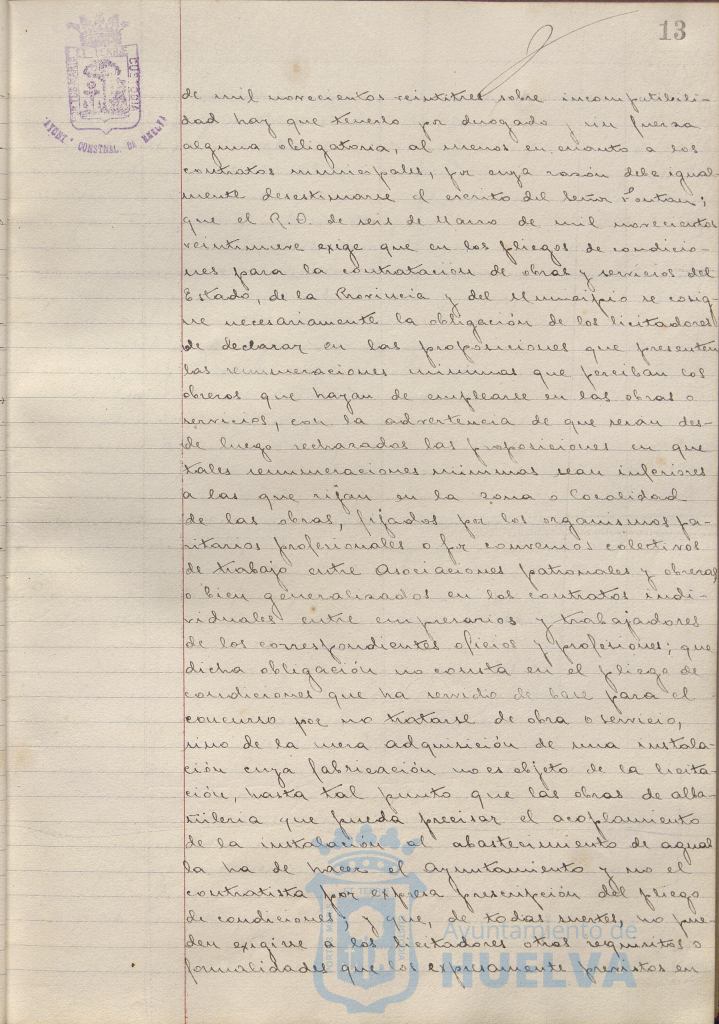 13
de mil novecientos veintitres sobre incompatibili-
dad hay que tenerlo por derogado y sin fuerza
alguna obligatoria, al menos en cuanto a los
contratos municipales, por cuya razón debe igual-
mente desestimarse el escrito del Señor
que el R.O. de seis de Marzo de mil novecientos
veintinueve exige que en los pliegos de condicio-
nes para la contratación de obras y servicios del
Estado, de la Provincia y del Municipio se cosig-
ne necesariamente la obligación de los licitadores
de declarar en las proposiciones que presenten
las remuneraciones minimas que perciban los
obreros que hayan de emplearse en las obras o
servicios, con la advertencia de que seran des-
de luego rechazadas las proposiciones en que
tales remuneraciones minimas sean inferiores
a las que rijan en la zona o localidad
de las obras, fijados por los organismos pa-
ritarios profesionales o por convenios colectivos
de trabajo entre Asociaciones patronales y obreras
o bien generalizados en los contratos indi-
viduales entre empresarios y trabajadores
de los correspondientes oficios y profesiones; que
dicha obligación no consta en el pliego de
condiciones que ha servido de base para el
concurso por no tratarse de obra o servicio,
sino de la mera adquisición de una instala-
ción cuya fabricación no es objeto de la licita-
ción, hasta tal punto que las obras de alba-
ñileria que pueda precisar el acoplamiento
de la instalación al abastecimiento de aguas
la ha de hacer el Ayuntamiento y no el
contratista por expresa prescripción del pliego
de condiciones; y que, de todas suertes, no pue-
den exigirse a los licitadores otros requisitos o
formalidades que los expresamente previstos en
Ayuntamiento de
HUELVA